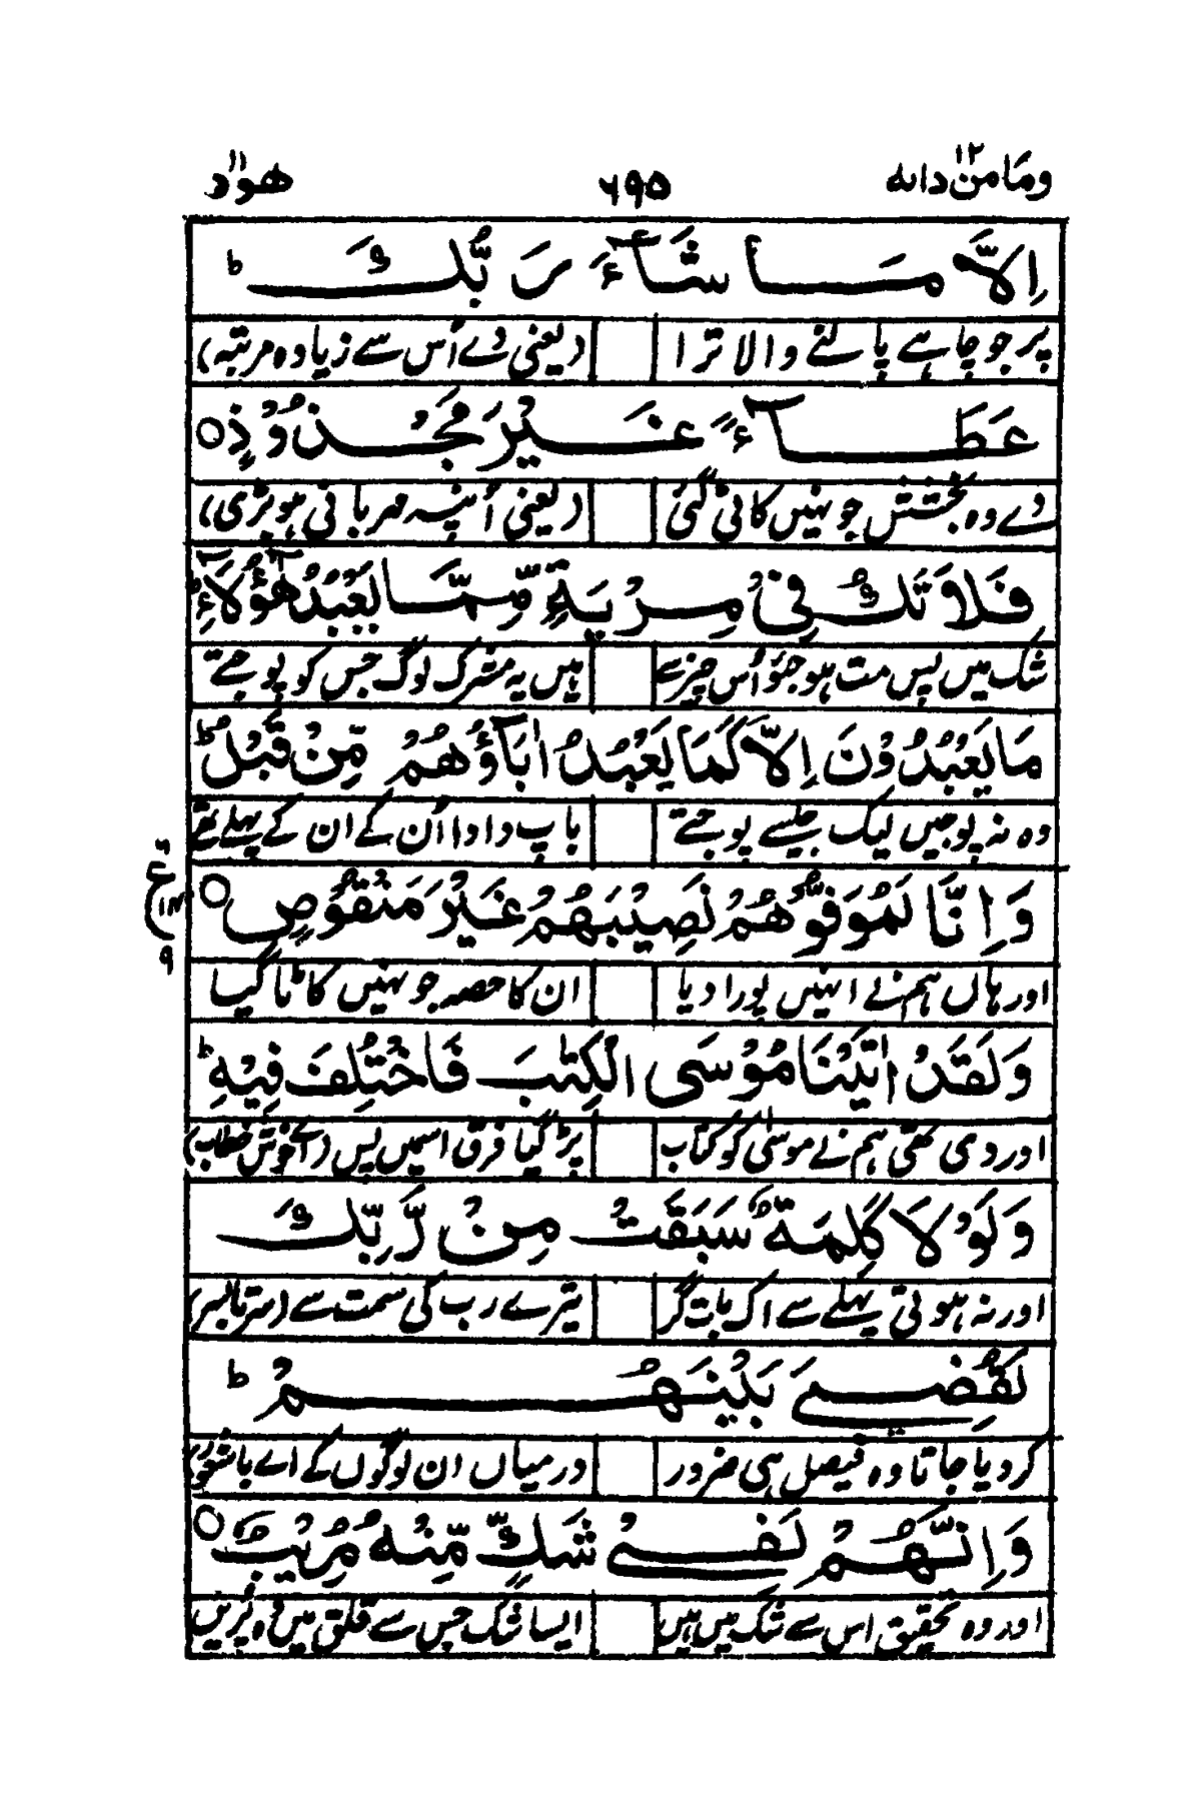 ومامن دابہ ۱۲ ۶۹۵ ھود ۱۱
اِلَّا مَا شَآءَ رَبُّكَ ؕ
پر جو چاہے پالنے والا ترا (یعنی دے اُس سے زیادہ مرتبہ)
عَطَآءً غَيْرَ مَجْذُوْذٍ ○
دے وہ بخشش جو نہیں کاٹی گئی (یعنی اُنپہ مہربانی ہو بڑی)
فَلَا تَكُ فِيْ مِرْيَةٍ مِّمَّا يَعْبُدُ هٰٓؤُلَآءِ ؕ
شک میں پس مت ہو جیٔو اُس چیز سے ہیں یہ مشرک لوگ جس کو پوجتے
مَا يَعْبُدُوْنَ اِلَّا كَمَا يَعْبُدُ اٰبَآؤُهُمْ مِّنْ قَبْلُ ؕ
وہ نہ پوجیں لیک جیسے پوجتے باپ دادا اُن کے ان کے پہلے تھے
وَاِنَّا لَمُوَفُّوْهُمْ نَصِيْبَهُمْ غَيْرَ مَنْقُوْصٍ ○
ع ۹
اور ہاں ہم نے انہیں پورا دیا ان کا حصہ جو نہیں کاٹا گیا
وَلَقَدْ اٰتَيْنَا مُوْسَى الْكِتٰبَ فَاخْتُلِفَ فِيْهِ ؕ
اور دی تھی ہم نے موسٰی کو کتاب پڑ گیا فرق اسمیں پس (اے خوش خطاب)
وَلَوْ لَا كَلِمَةٌ سَبَقَتْ مِنْ رَّبِّكَ
اور نہ ہوتی پہلے سے اک بات گر تیرے رب کی سمت سے (سرتابسر)
لَقُضِيَ بَيْنَهُمْ ؕ
کر دیا جاتا وہ فیصل ہی ضرور درمیاں ان لوگوں کے اے باشعور
وَاِنَّهُمْ لَفِيْ شَكٍّ مِّنْهُ مُرِيْبٍ ○
اور وہ تحقیق اس سے شک میں ہیں ایسا شک جس سے قلق میں وہ پڑیں